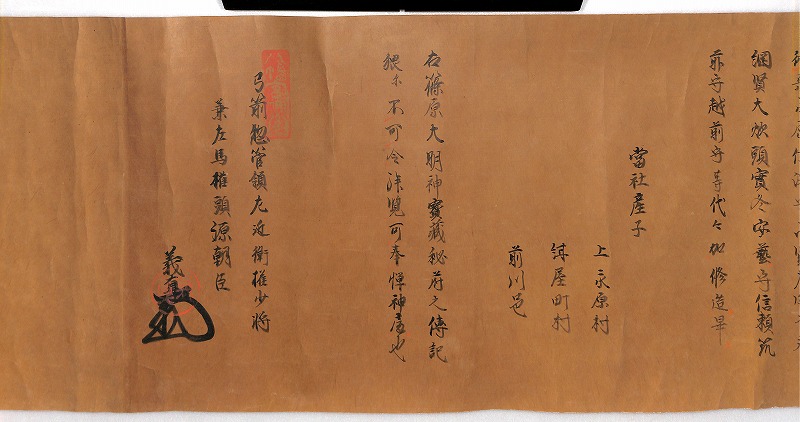 綱賢大炊頭實冬安藝守信頼筑
前守越前守等代々加修造畢
當社産子
上永原村
紺屋町村
前川邑
右篠原大明神寳藏秘府之傳記
猥尓不可令
覧可奉憚神慮也
弓箭惣管領左近衛権少将
兼左馬権頭源朝臣
義真